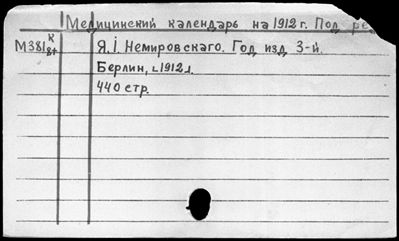 Медицинский календарь на 1912 г. Под ред
М381 к
8+ Я.І. Немировскаго. Год изд. 3-й.
Берлин, [1912].
440 стр.